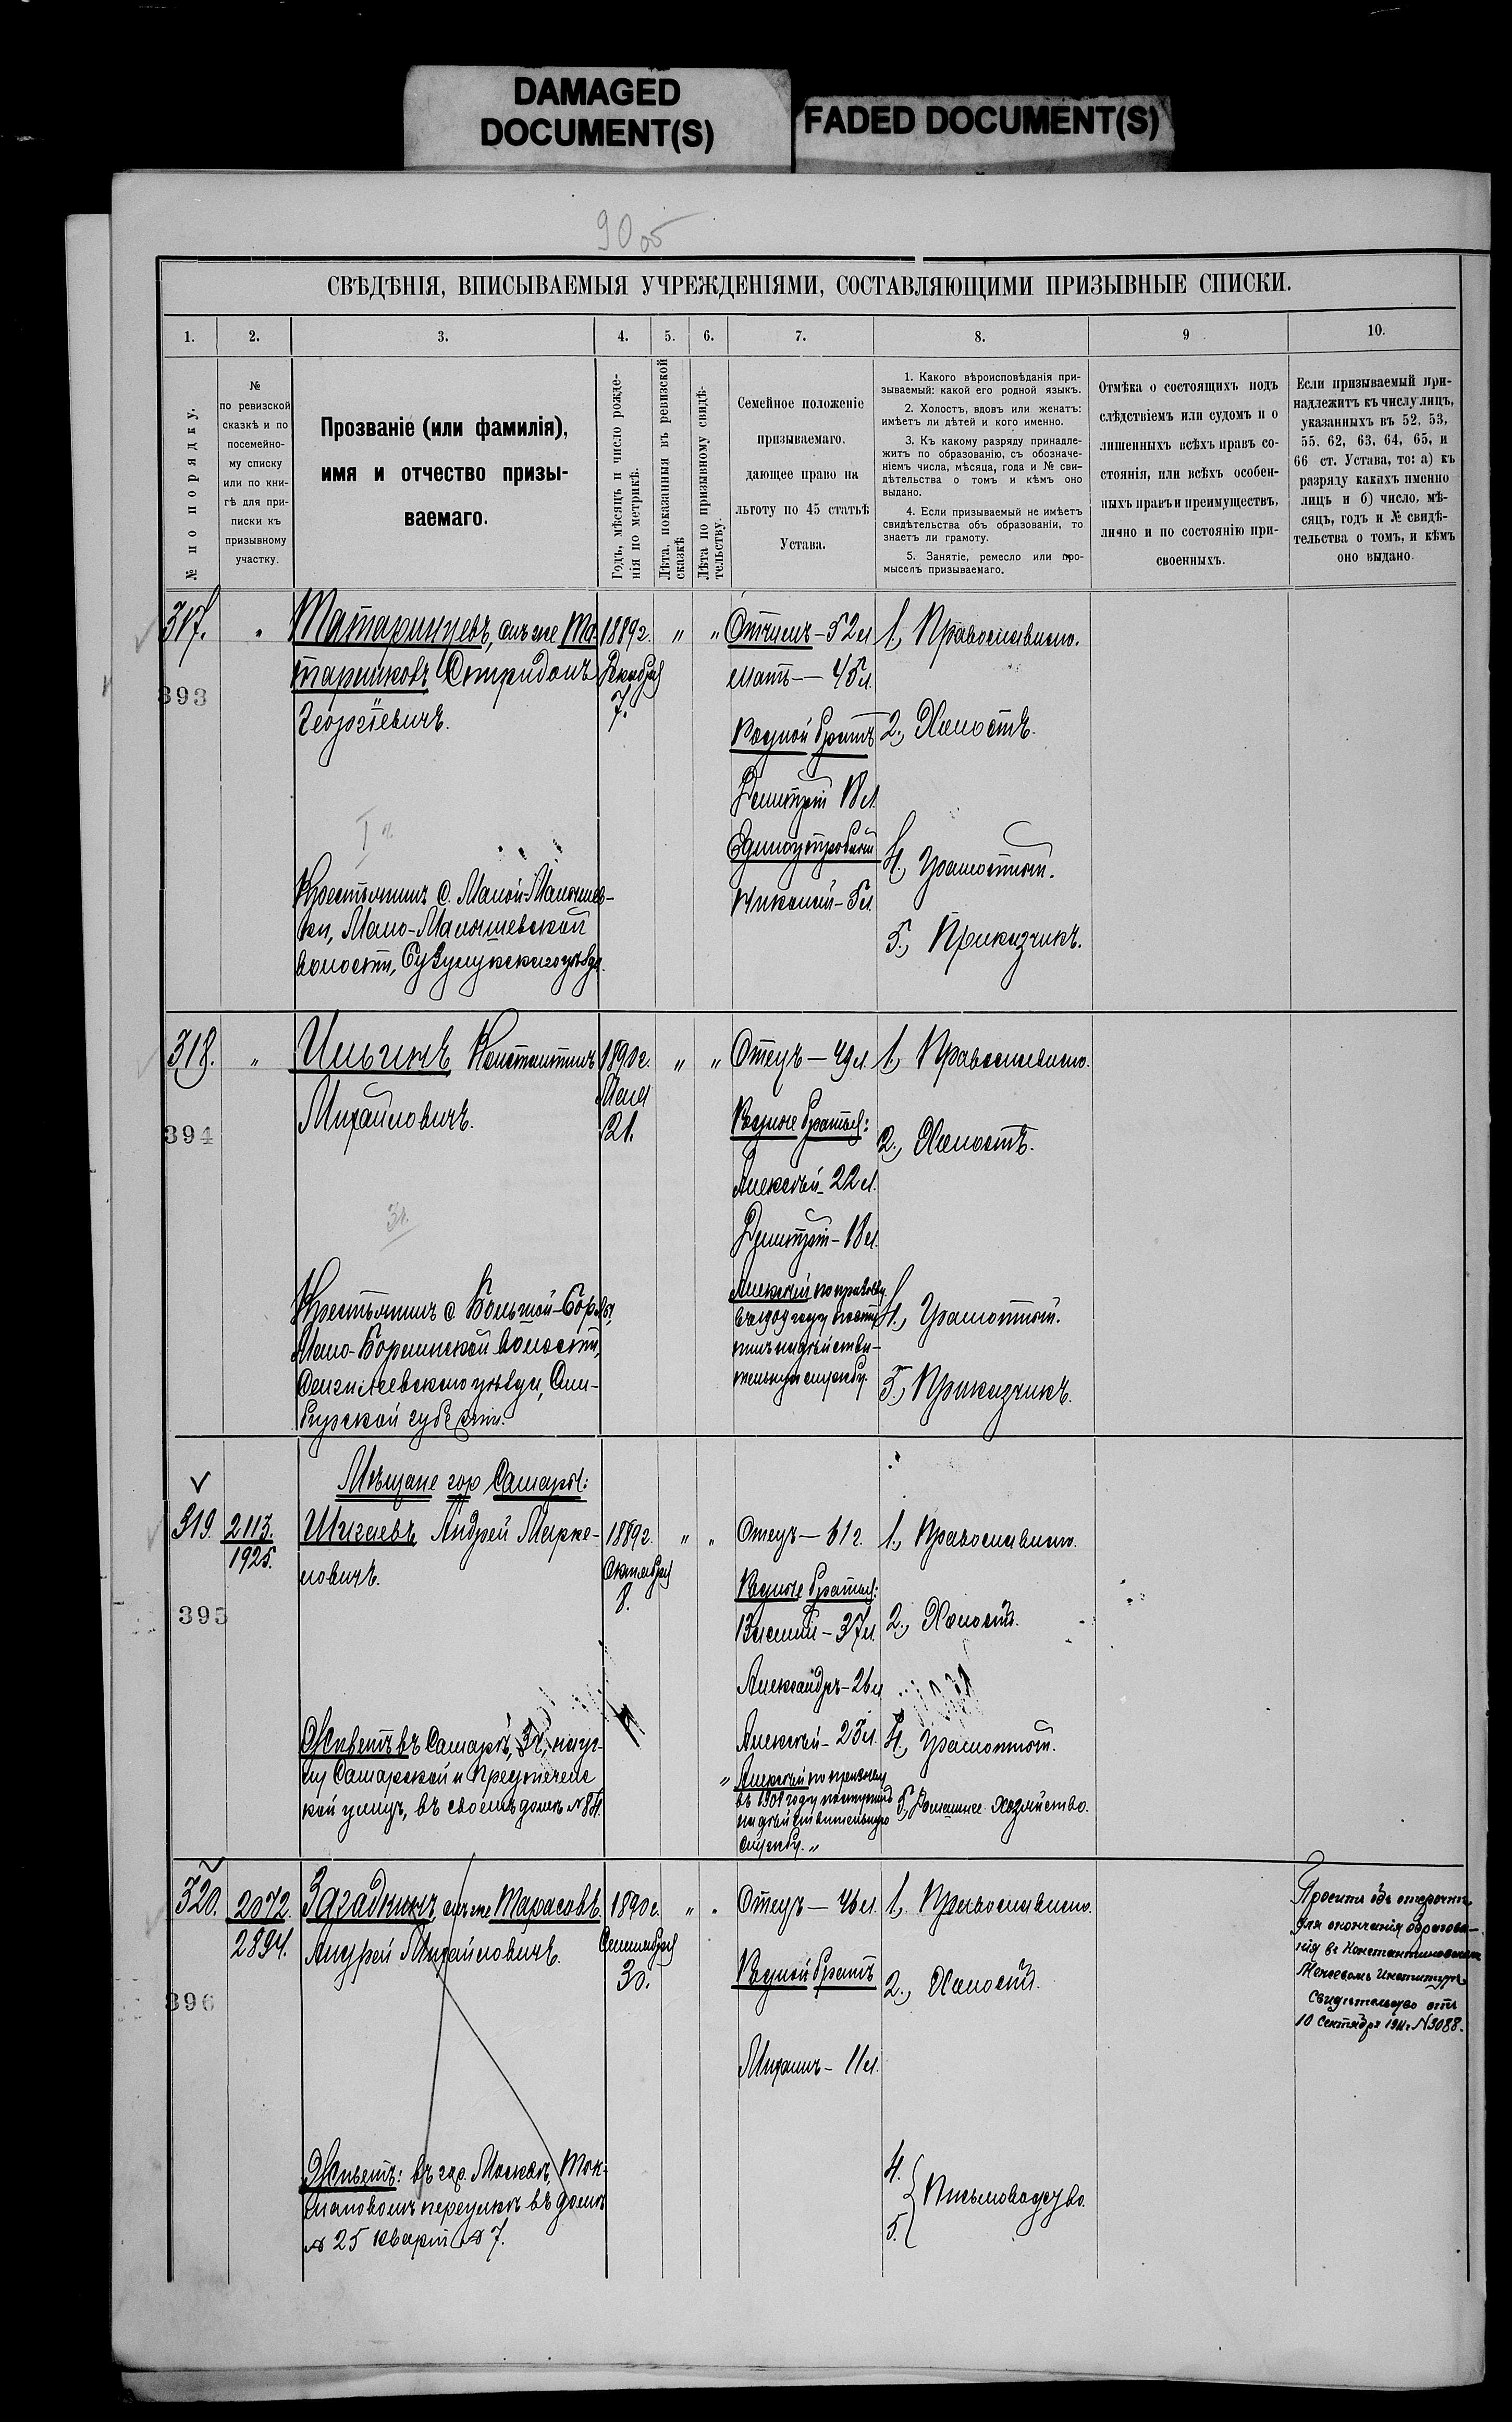 DAMAGED
DOCUMENT(S)
FADED DOCUMENT(S)
90 об
СВѢДѢНІЯ, ВПИСЫВАЕМЫЯ УЧРЕЖДЕНІЯМИ, СОСТАВЛЯЮЩИМИ ПРИЗЫВНЫЕ СПИСКИ.
1.
2.
3.
4.
5.
6.
7.
8.
9
10.
№ по порядку.
№
по ревизской
сказкѣ и по
посемейно-
му списку
или по кни-
гѣ для при-
писки къ
призывному
участку.
Прозваніе (или фамилія),
имя и отчество призы-
ваемаго.
Годъ, мѣсяцъ и число рожде-
нія по метрикѣ.
Лѣта, показанныя въ ревизской
сказкѣ
Лѣта по призывному свидѣ-
тельству.
Семейное положеніе
призываемаго,
дающее право на
льготу по 45 статьѣ
Устава.
1. Какого вѣроисповѣданія при-
зываемый: какой его родной языкъ.
2. Холостъ, вдовъ или женатъ:
имѣетъ ли дѣтей и кого именно.
3. Къ какому разряду принадле-
житъ по образованію, съ обозначе-
ніемъ числа, мѣсяца, года и № сви-
дѣтельства о томъ и кѣмъ оно
выдано.
4. Если призываемый не имѣетъ
свидѣтельства объ образованіи, то
знаетъ ли грамоту.
5. Занятіе, ремесло или про-
мыселъ призываемаго.
Отмѣка о состоящихъ подъ
слѣдствіемъ или судомъ и о
лишенныхъ всѣхъ правъ со-
стоянія, или всѣхъ особен-
ныхъ правъ и преимуществъ,
лично и по состоянію при-
своенныхъ.
Если призываемый при-
надлежитъ къ числу лицъ,
указанныхъ въ 52, 53,
55. 62, 63, 64, 65, и
66 ст. Устава, то: а) къ
разряду какихъ именно
лицъ и б) число, мѣ-
сяцъ, годъ и № свидѣ-
тельства о томъ, и кѣмъ
оно выдано.
317.
393
"
Матаринцевъ, онъ же Ма-
тарниковъ Спиридонъ
Георгіевичъ.
Крестьянинъ с. Малой-Малышев-
ки, Мало-Малышевской
волости, Бузулукскаго уѣзда.
1889 г.
Декабря
7.
" "
Отчимъ — 52 л.
мать — 45 л.
Родной братъ
Димитрій 18 л.
Единоутробный
Николай — 5 л.
1., Православнаго.
2., Холостъ.
4., Грамотный.
5., Приказчикъ.
318.
394
"
Ильинъ Константинъ
Михайловичъ.
Крестьянинъ с. Большой-Борлы,
Мало-Борлинской волости,
Сенгилеевскаго уѣзда, Сим-
бирской губерніи.
1890 г.
Мая
21.
" "
Отецъ — 49 л.
Родные братья:
Алексѣй — 22 л.
Димитрій — 18 л.
Алексѣй по призыву
въ 1909 году посту-
пилъ на дѣйстви-
тельную службу.
1., Православнаго.
2., Холостъ.
4., Грамотный.
5., Приказчикъ.
Мѣщане гор Самары:
319.
395
2113.
1925.
Шигаевъ Андрей Марке-
ловичъ.
Живетъ въ Самарѣ, 3 ч, на уг-
лу Самарской и Предтечен-
кой улицъ, въ своемъ домѣ № 84.
1889 г.
Октября
8.
" "
Отецъ — 61 г.
Родные братья:
Василій — 37 л.
Александръ — 26 л.
Алексѣй — 23 л.
" Алексѣй по призыву
въ 1909 году поступилъ
на дѣйствительную
службу. "
1., Православнаго.
2., Холостъ.
4., Грамотный.
5., Домашнее хозяйство.
320.
396
2072.
2894.
Здгадкинъ, онъ же Тарасовъ
Андрей Михайловичъ.
Живетъ: въ гор. Москвѣ, Ток-
маковомъ переулкѣ въ домѣ
№ 25 кварт № 7.
1890 г.
Сентября
30.
" "
Отецъ — 46 л.
Родной братъ
Михаилъ — 11 л.
1., Православнаго.
2., Холостъ.
4.
5.
Письмоводство.
Проситъ объ отсрочкѣ
для окончанія образова-
нія въ Константиновскомъ
Межевомъ Институтѣ
Свидѣтельство отъ
10 Сентября 1911 г. № 3088.